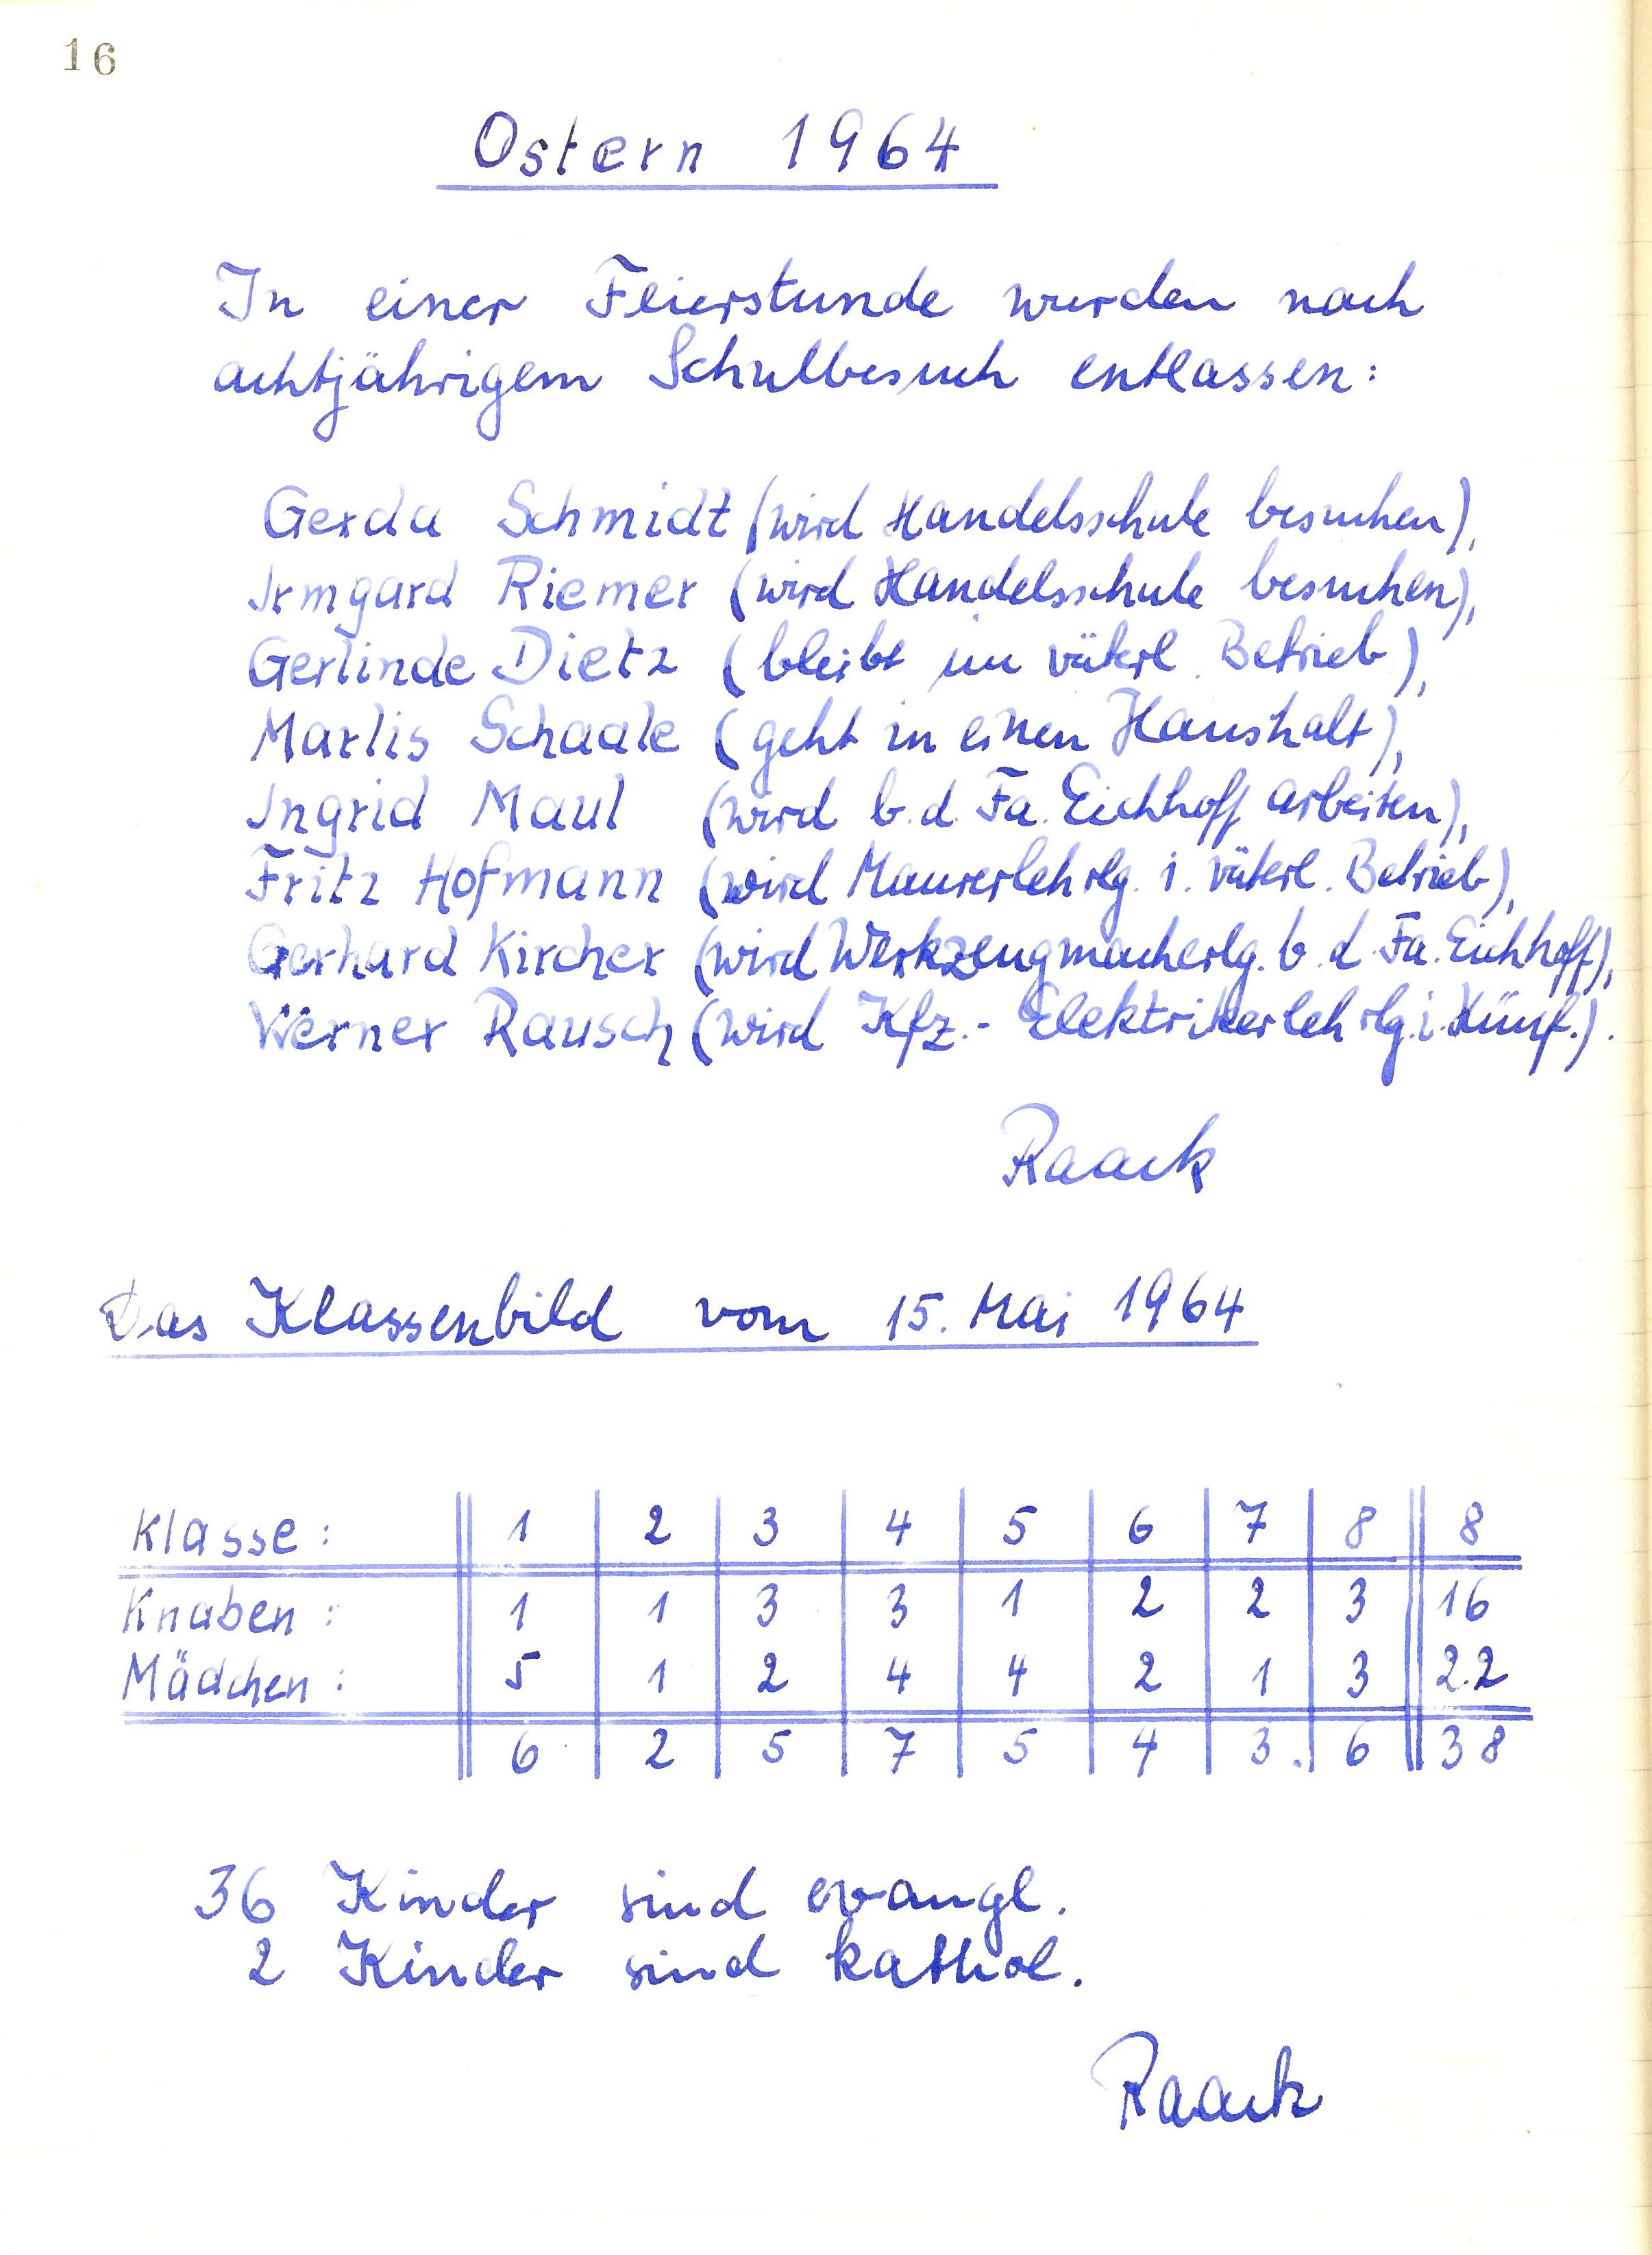 16
Ostern 1964
In einer Feierstunde wurden nach
achtjährigem Schulbesuch entlassen:
Gerda Schmidt (wird Handelsschule besuchen),
Irmgard Riemer (wird Handelsschule besuchen),
Gerlinde Dietz (bleibt im väterl. Betrieb),
Marlis Schaale (geht in einen Haushalt),
Ingrid Maul (wird b. d. Fa. Eichhoff arbeiten),
Fritz Hofmann (wird Maurerlehrlg. i. väterl. Betrieb),
Gerhard Kircher (wird Werkzeugmacherlg. b. d. Fa. Eichhoff),
Werner Rausch (wird Kfz.-Elektrikerlehrlg. i. Hünf.).
Raack
Das Klassenbild vom 15. Mai 1964
Klasse: 1 2 3 4 5 6 7 8 8
Knaben: 1 1 3 3 1 2 2 3 16
Mädchen: 5 1 2 4 4 2 1 3 22
6 2 5 7 5 4 3 6 38
36 Kinder sind evangl.
2 Kinder sind kathol.
Raack